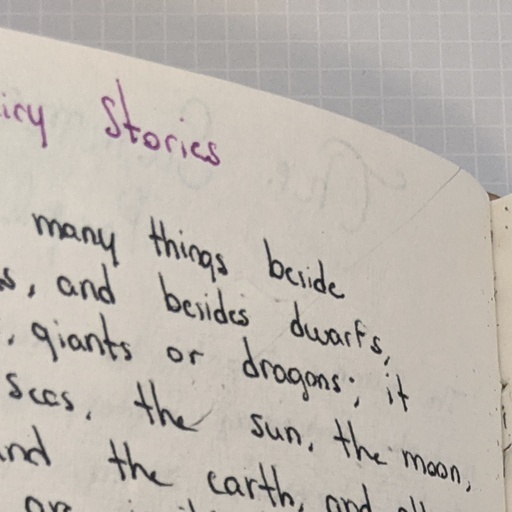 Stories
many things beside
, and besides dwarfs,
, giants or dragons; it
seas, the sun, the moon,
the earth, and